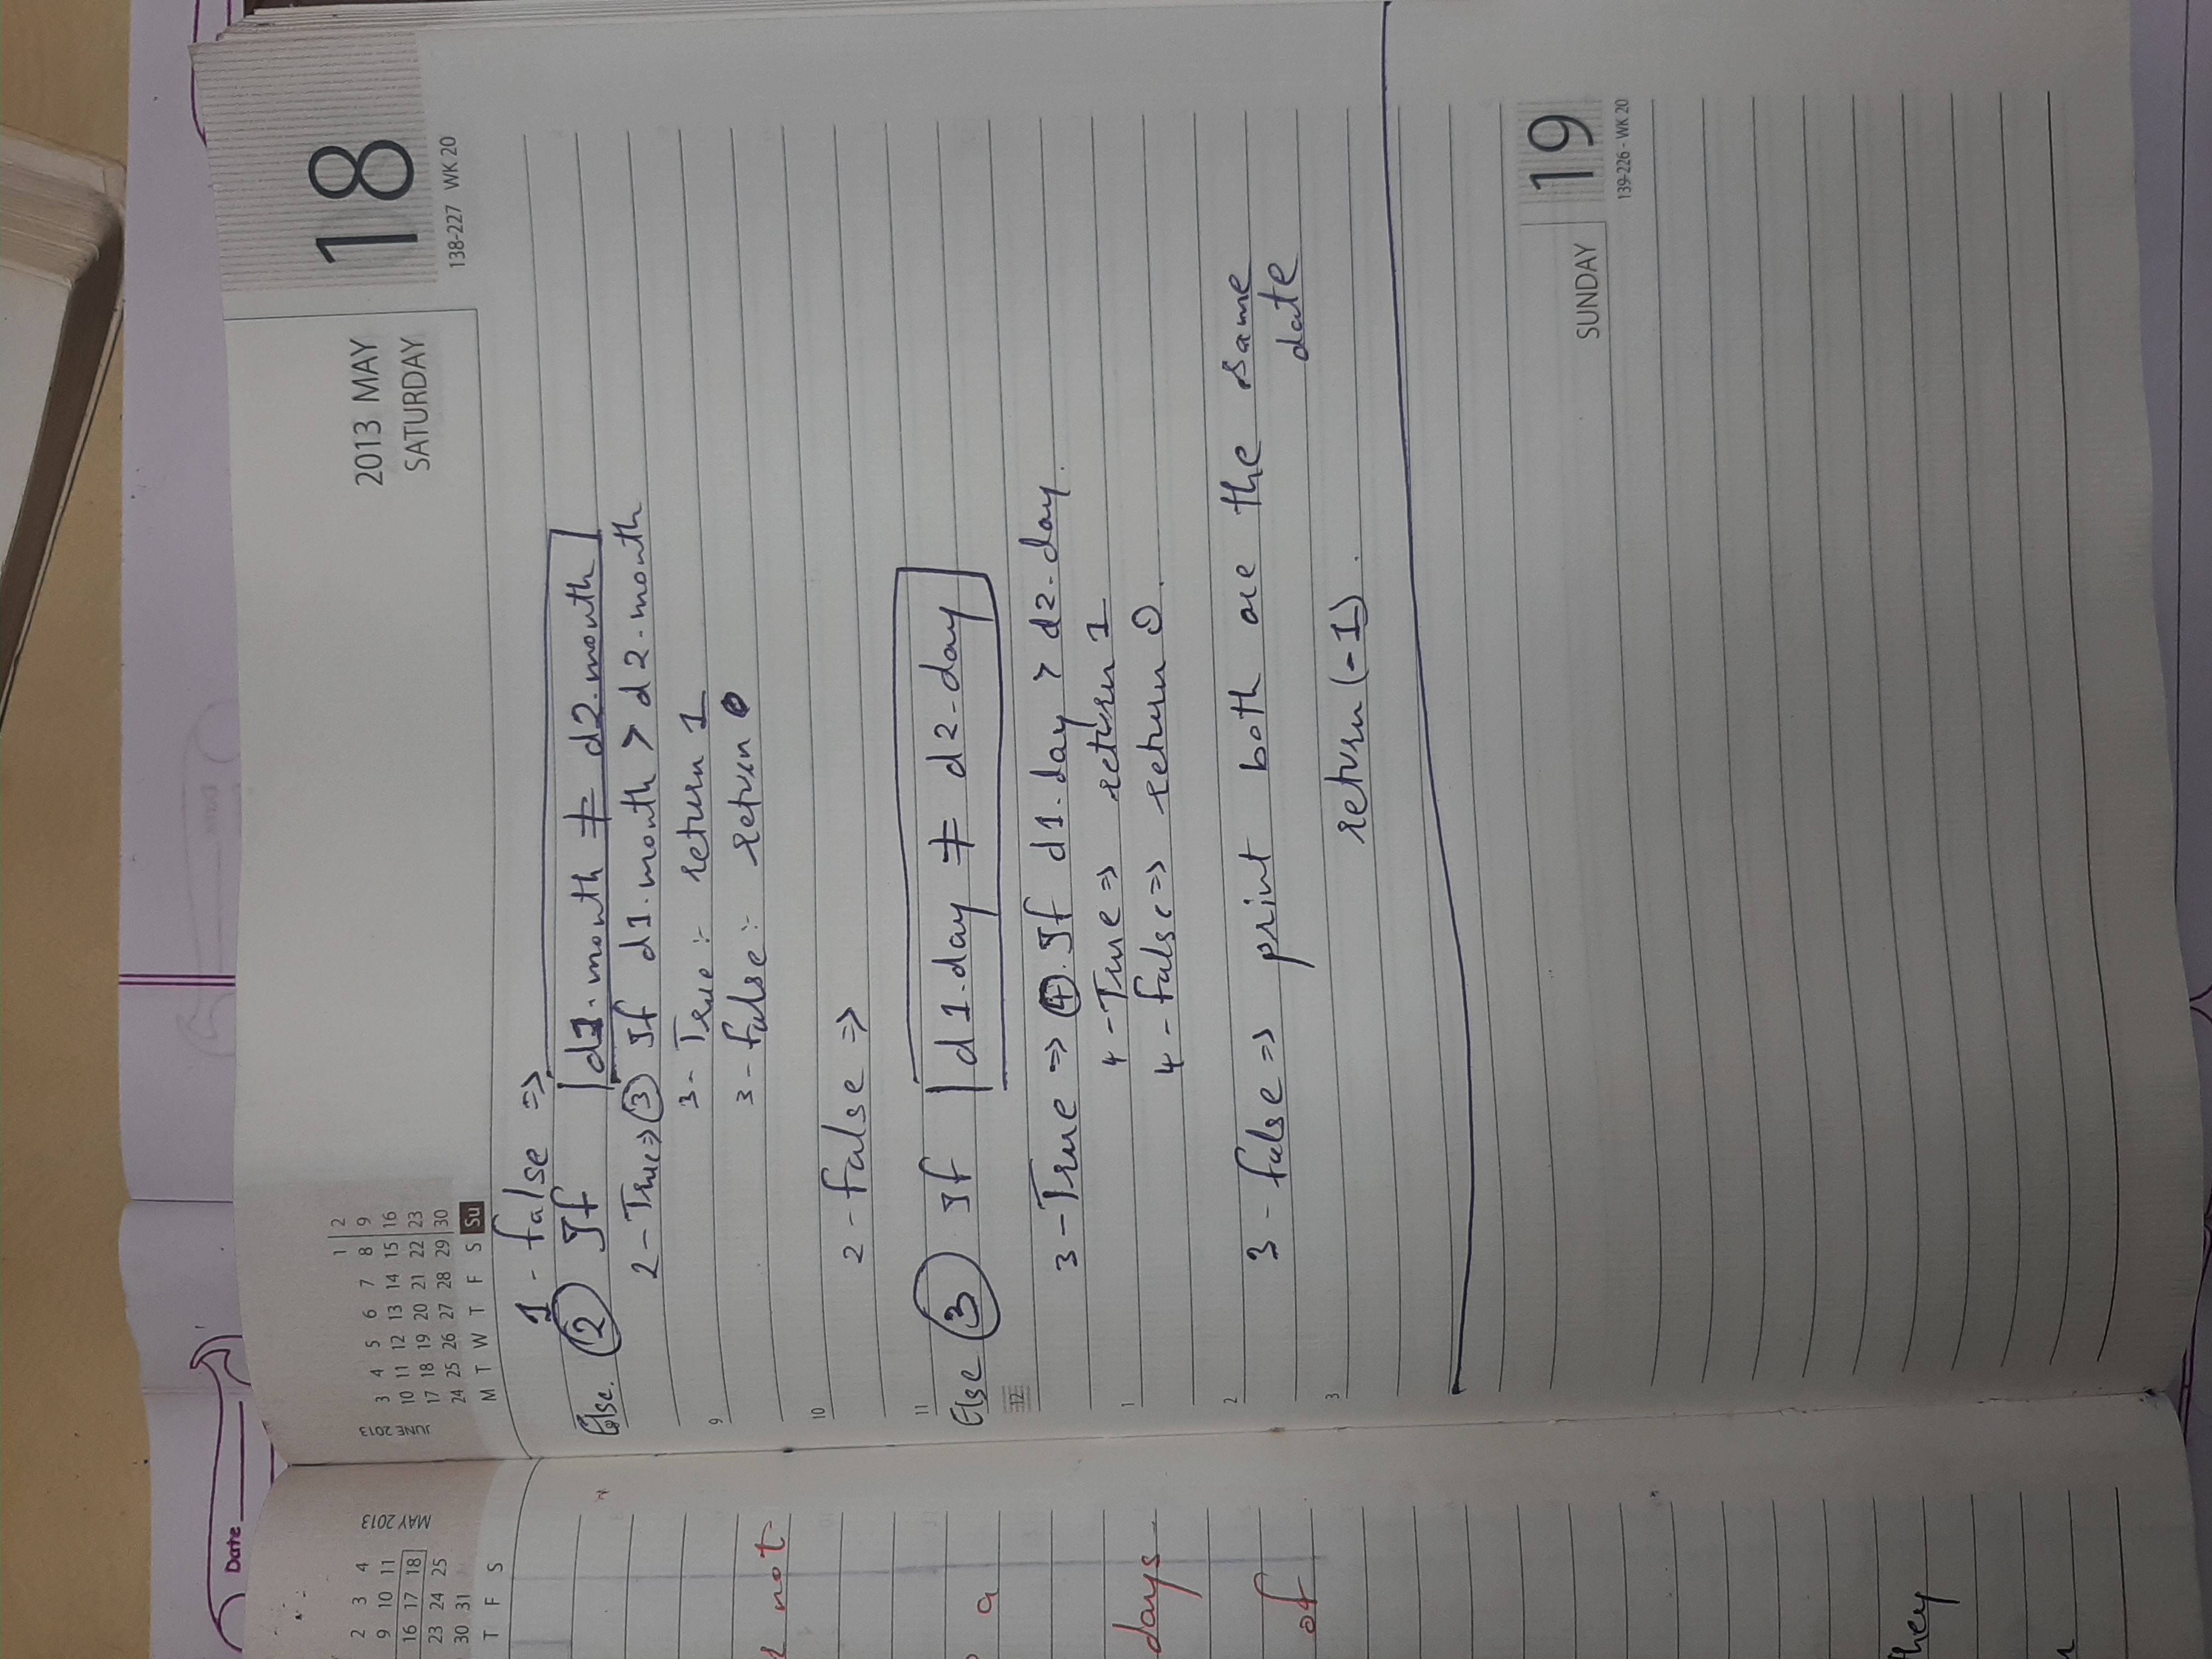 Date
2 3 4
9 10 11
16 17 18
23 24 25
30 31
T F S
MAY 2013
not
a
days
of
they
JUNE 2013
1 2
3 4 5 6 7 8 9
10 11 12 13 14 15 16
17 18 19 20 21 22 23
24 25 26 27 28 29 30
M T W T F S Su
2013 MAY
SATURDAY
18
138-227 WK 20
1 - false =>
Else. ② If d1.month ≠ d2.month
2 - True => ③ If d1.month > d2.month
3 - True :- return 1
9
3 - false :- return 0
10
2 - false =>
11
Else ③ If d1.day ≠ d2.day
12
3 - True => ④. If d1.day > d2.day.
4 - True => return 1
1
4 - false => return 0.
2
3 - false => print both are the same
date
3
return (-1).
SUNDAY
19
139-226 - WK 20